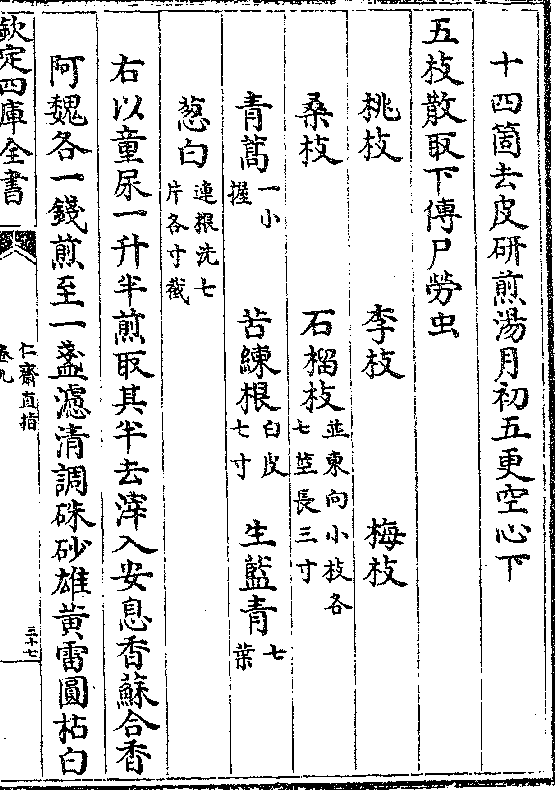 十四箇去皮研煎湯月初五更空心下
五枝散取下傳尸勞虫
桃枝　李枝　梅枝
桑枝　石榴枝並東向小枝各七莖長三寸
青蒿一小握　苦練根白皮七寸　生藍青七葉
葱白連根洗七片各寸截
右以童尿一升半煎取其半去滓入安息香蘇合香
阿魏各一錢煎至一盞濾清調硃砂雄黃雷圓枯白
欽定四庫全書
仁齋直指
卷九
三十七